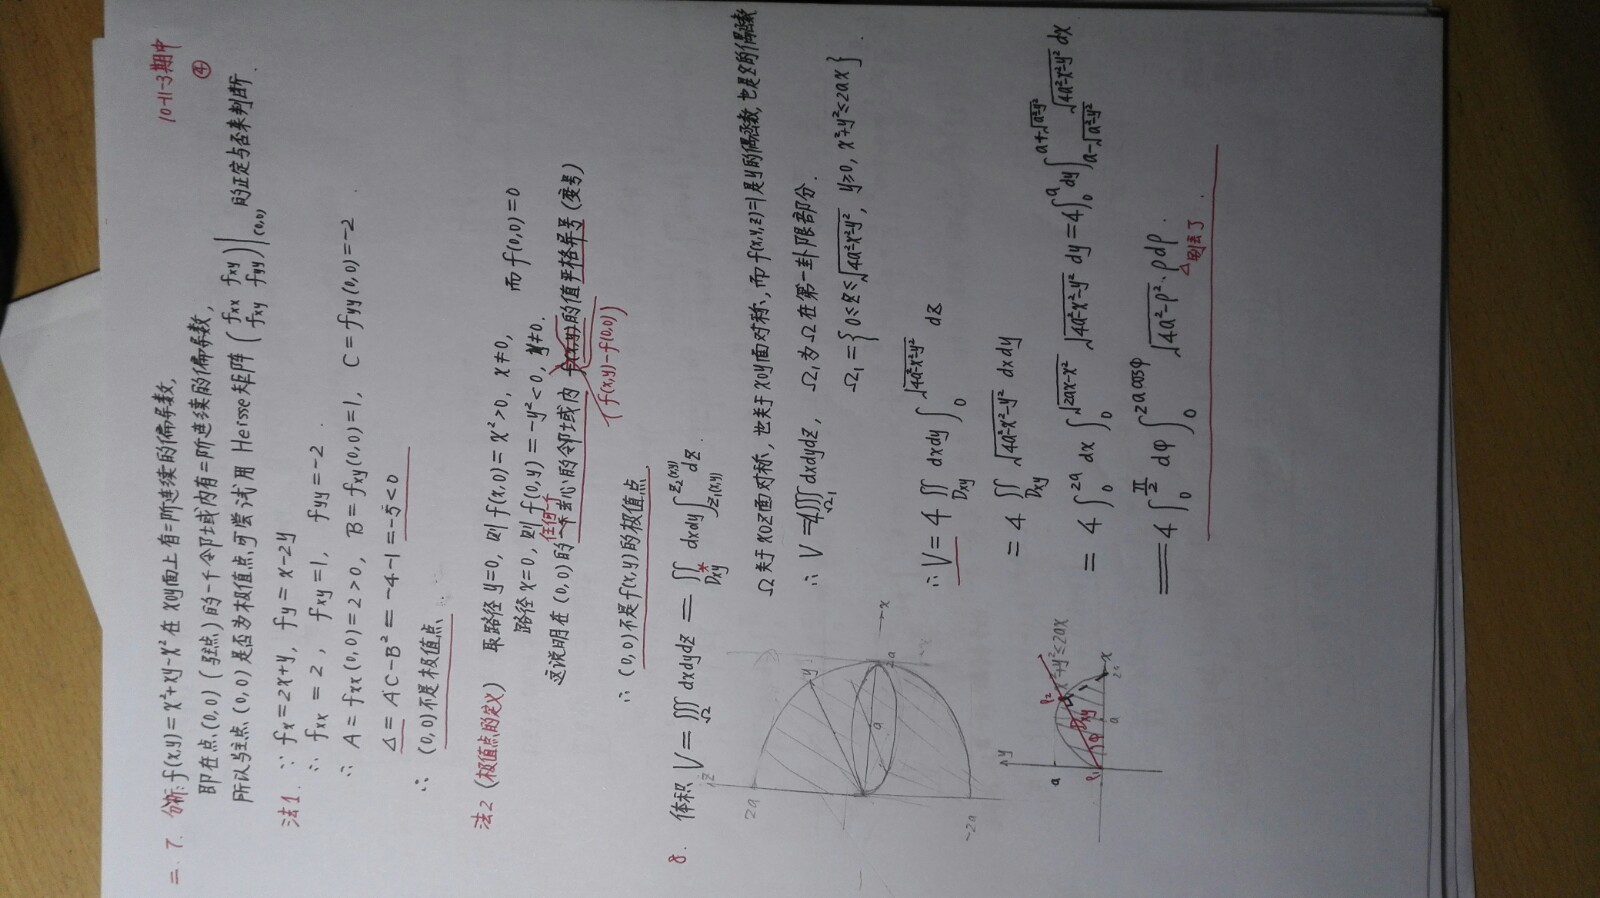 10-11-3期中
④
二. 7. 分析: f(x,y)=x²+xy-x² 在xoy面上有二阶连续的偏导数,
即在点(0,0)(驻点)的一个邻域内有二阶连续的偏导数,
所以驻点(0,0)是否为极值点,可尝试用 Hersse矩阵 (fxx fxy / fxy fyy)|(0,0) 的正定与否来判断.
法1. ∵ fx=2x+y, fy=x-2y
∴ fxx=2, fxy=1, fyy=-2.
∴ A=fxx(0,0)=2>0, B=fxy(0,0)=1, C=fyy(0,0)=-2
△=AC-B²=-4-1=-5<0
∴ (0,0)不是极值点.
法2 (极值点的定义) 取路径 y=0, 则 f(x,0)=x²>0, x≠0, 而 f(0,0)=0
路径 x=0, 则 f(0,y)=-y²<0, y≠0.
这说明在(0,0)的任何一个去心的邻域内 的值严格异号(变号)
(f(x,y)-f(0,0))
∴ (0,0)不是f(x,y)的极值点.
8. 体积 V=∭Ω dxdydz = ∬Dxy* dxdy ∫z₁(x,y)^z₂(x,y) dz
Ω关于xoz面对称, 也关于xoy面对称, 而f(x,y,z)=1是y的偶函数, 也是z的偶函数
∴ V=4∭Ω₁ dxdydz, Ω₁为Ω在第一卦限部分.
Ω₁={0≤z≤√(4a²-x²-y²), y≥0, x²+y²≤2ax}.
∴ V=4∬Dxy dxdy ∫0^√(4a²-x²-y²) dz
=4∬Dxy √(4a²-x²-y²) dxdy
=4∫0^2a dx ∫0^√(2ax-x²) √(4a²-x²-y²) dy=4∫0^a dy ∫a-√(a²-y²)^a+√(a²-y²) √(4a²-x²-y²) dx
=4∫0^π/2 dφ ∫0^2acosφ √(4a²-ρ²)·ρdρ.
△别丢了
z
2a
y
a
2a
x
-2a
y
a
ρ₁
φ
Dxy
ρ₂
x²+y²≤2ax
a
x